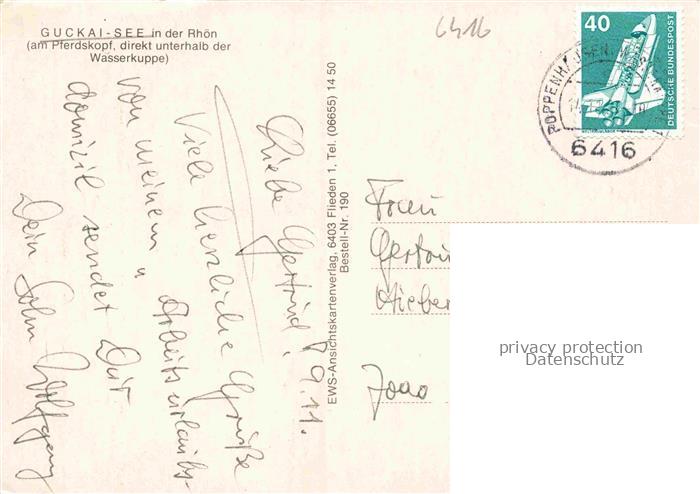 GUCKAI-SEE in der Rhön
(am Pferdskopf, direkt unterhalb der
Wasserkuppe)
6416
40
DEUTSCHE BUNDESPOST
POPPENHAUSEN
6416
9.11.
Liebe Gertrud!
Viele herzliche Grüße
von meinem Arbeitsurlaubs-
domizil sendet Dir
Dein Wolfgang
EWS-Ansichtskartenverlag, 6403 Flieden 1, Tel. (06655) 14 50
Bestell-Nr. 190
Frau
privacy protection
Datenschutz